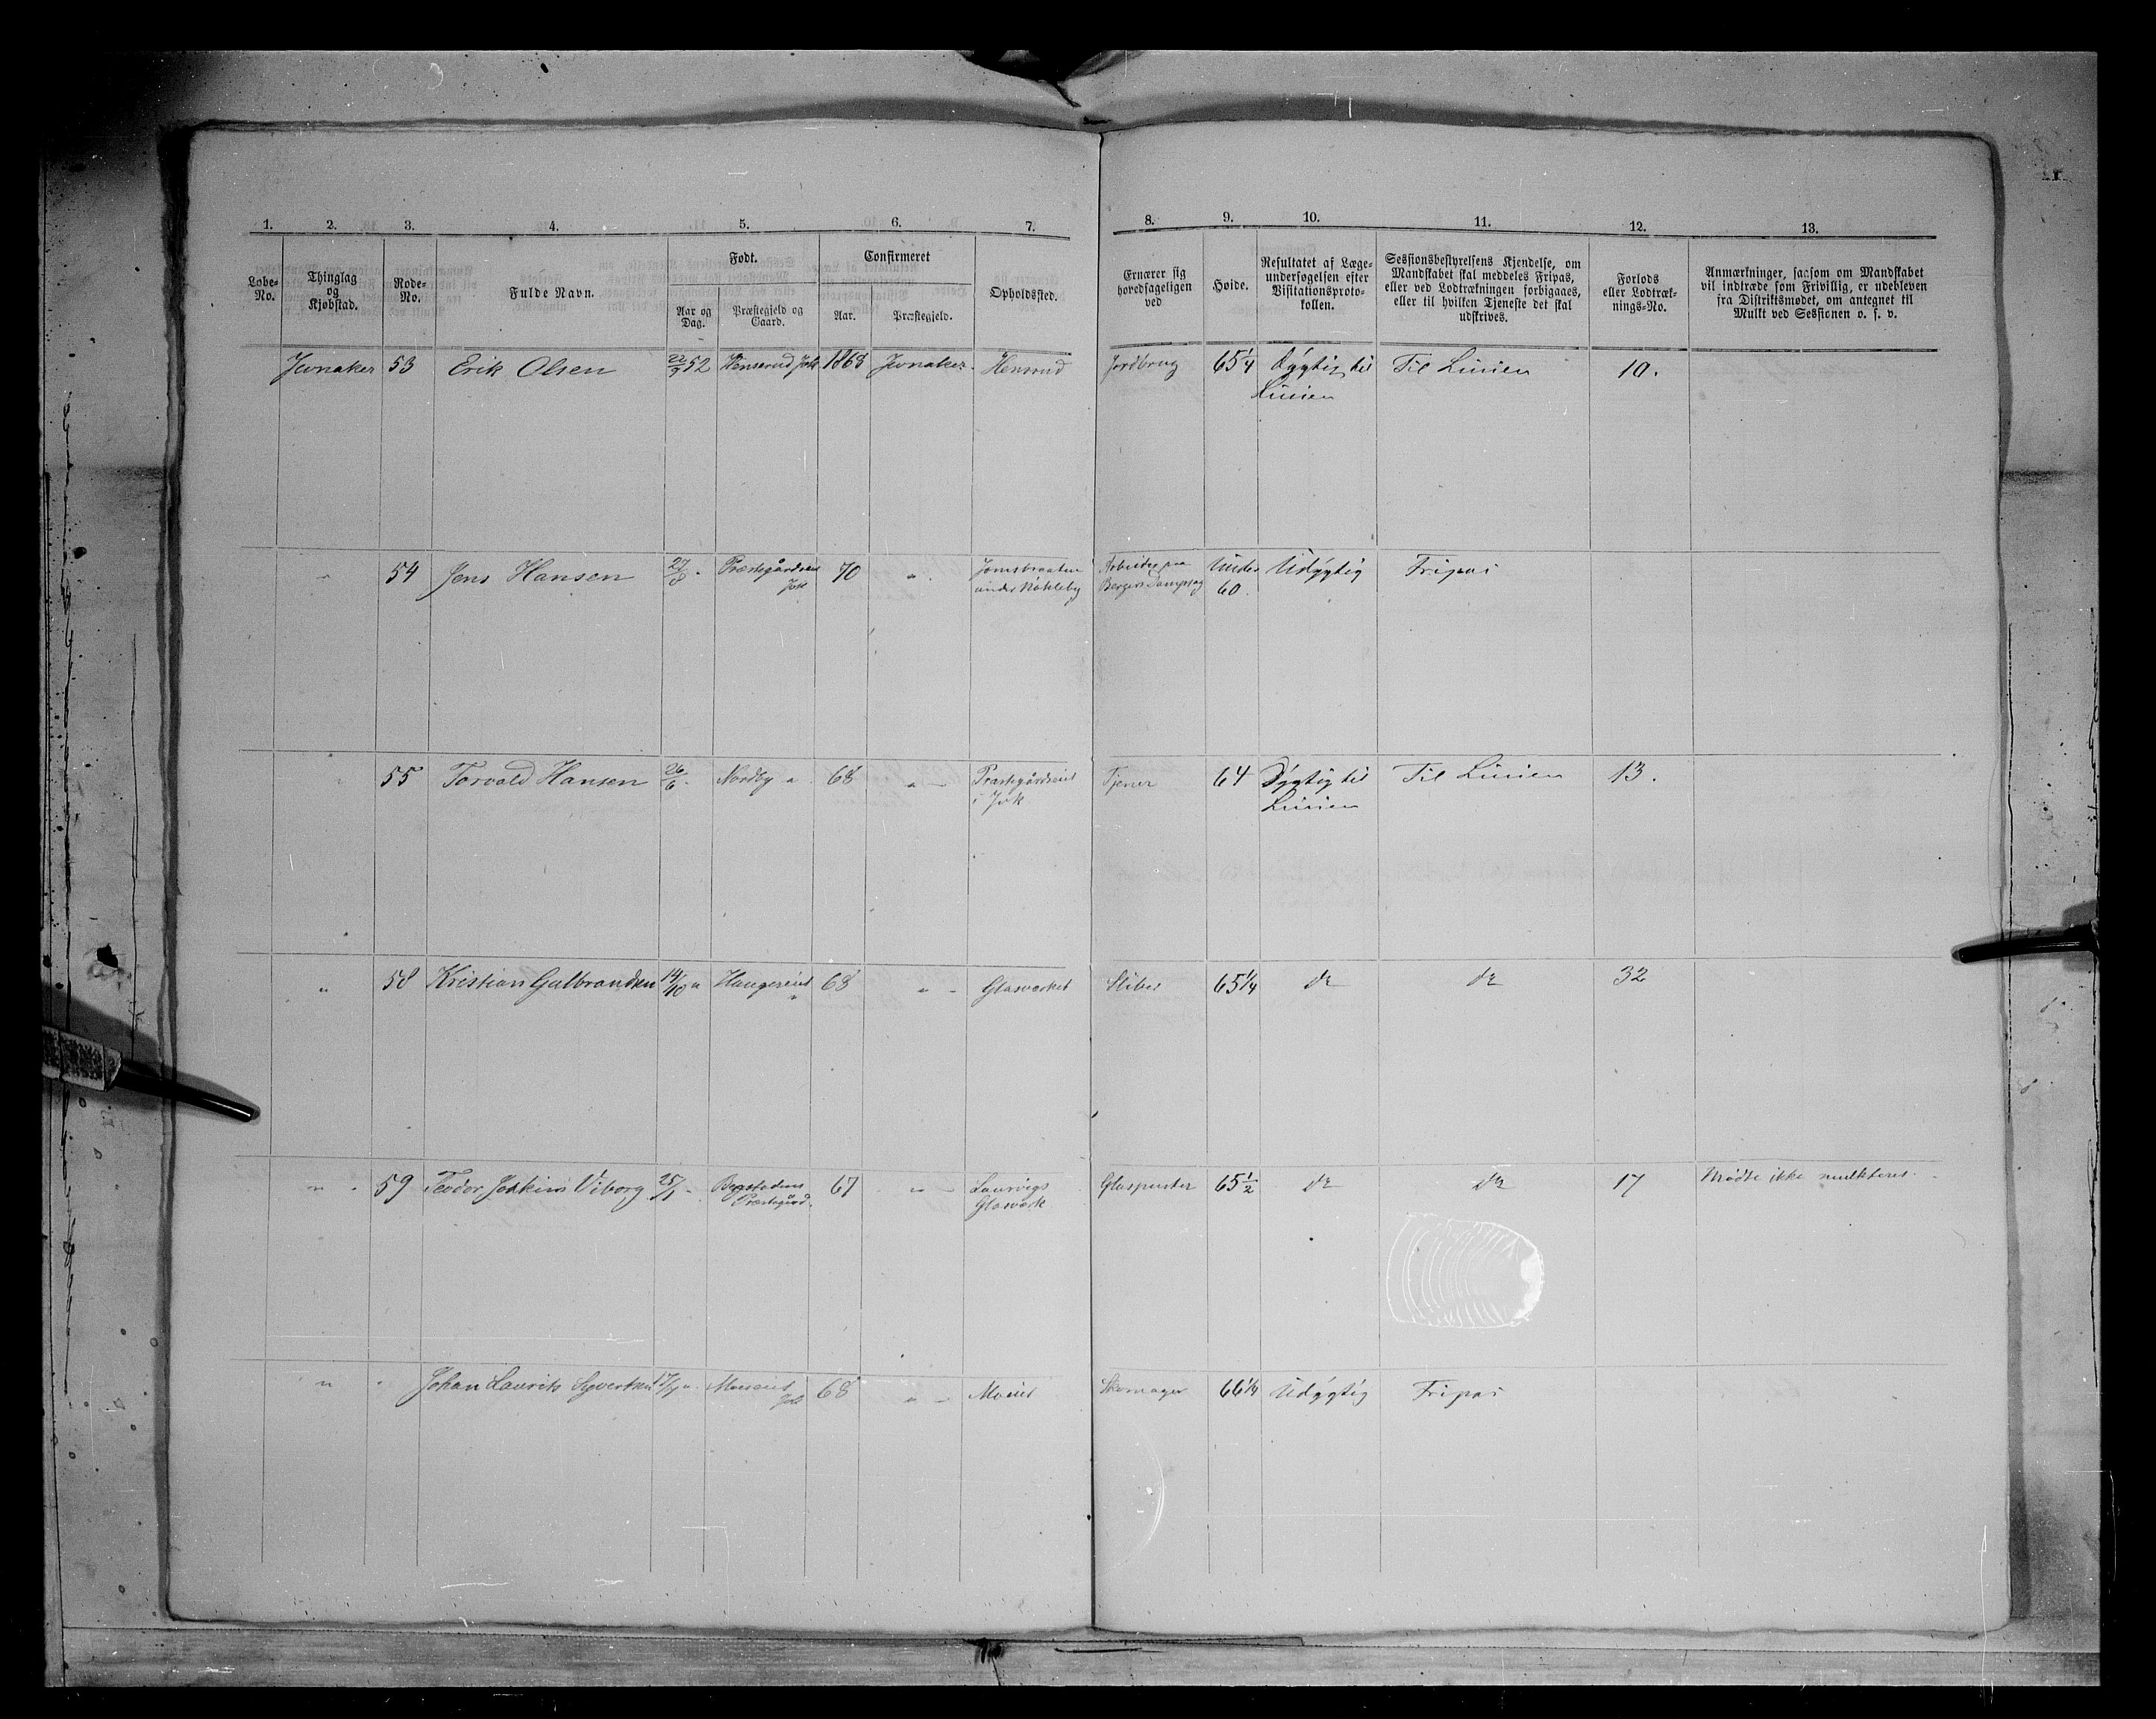 1. 2. 3. 4. 5. 6. 7. 8. 9. 10. 11. 12. 13.
Løbe-No.
Thinglag og Kjøbstad.
Rode-No.
Fulde Navn.
Født.
Aar og Dag.
Præstegjeld og Gaard.
Confirmeret
Aar.
Præstegjeld.
Opholdssted.
Ernærer sig hovedsageligen ved
Høide.
Resultatet af Læge-undersøgelsen efter Visitationsproto-kollen.
Sessionsbestyrelsens Kjendelse, om Mandskabet skal meddeles Fripas, eller ved Lodtrækningen forbigaaes, eller til hvilken Tjeneste det skal udskrives.
Forlods eller Lodtræk-nings-No.
Anmærkninger, saasom om Mandskabet vil indtræde som Frivillig, er udebleven fra Distriktsmødet, om antegnet til Mulkt ved Sessionen o. s. v.
Jevnaker 53 Erik Olsen 22/9 52 Henserud 1868 Jevnaker. Hensrud Jordbrug 65 1/4 Dygtig til Til Linien 10.
Linien
" 54 Jens Hansen 27/8 Præstegårdseiet 70 " Under Udygtig Fripas
under Nøkleby Bergers Dampsag 60.
" 55 Torvald Hansen 26/6 Nordby " 68 " Præstegårdseiet Tjener 64 Dygtig til Til Linien 13.
Linien
" 58 Kristian Gulbrandsen 14/10 " Haugereiet 68 " Glasværket Sliber 65 1/4 do do 32
" 59 Teodor Joakim Viborg 25/1 67 " Laurvigs Glaspuster 65 1/2 do do 17 Mødte ikke mulkteret.
Præstegård. Glasværk
" Johan Laurits Syvertsen 68 " Moeiet Skomager 66 1/4 Udygtig Fripas